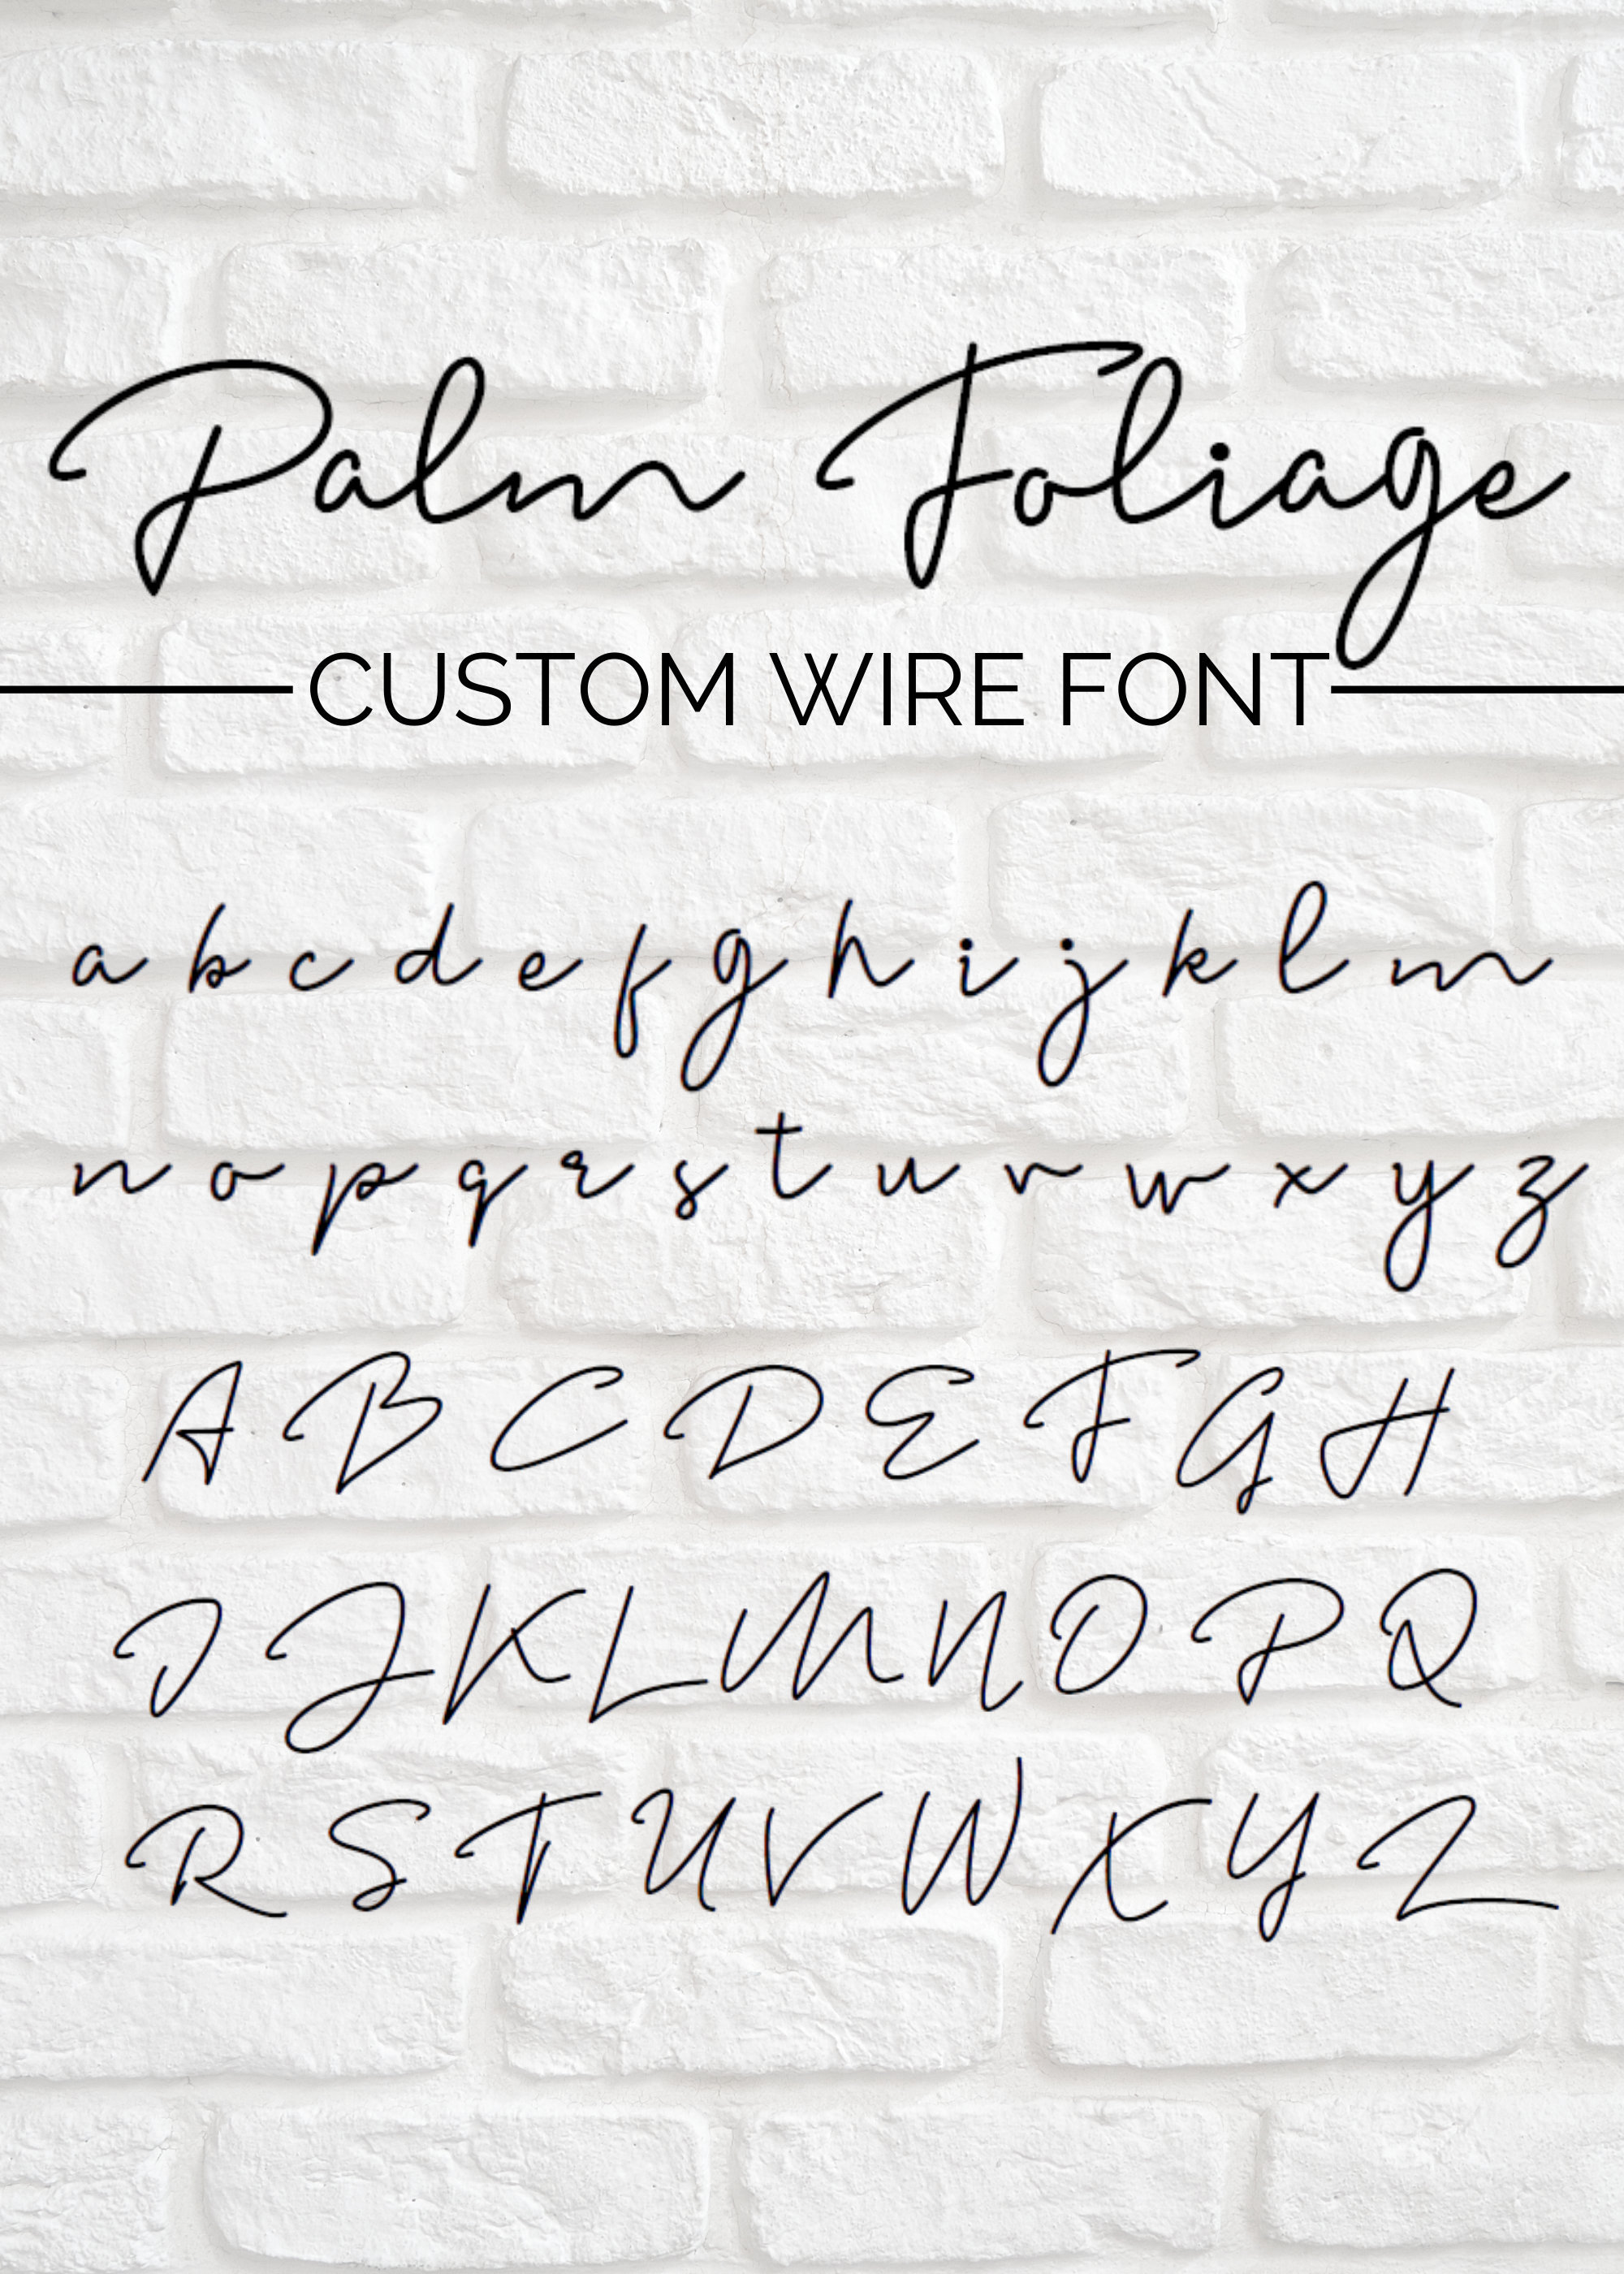 Palm Foliage
CUSTOM WIRE FONT
a b c d e f g h i j k l m
n o p q r s t u v w x y z
A B C D E F G H
I J K L M N O P Q
R S T U V W X Y Z